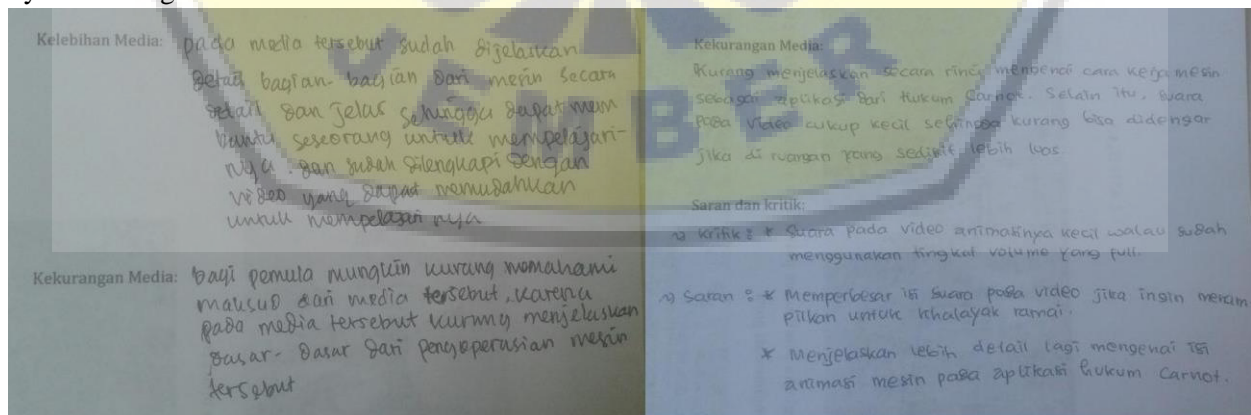 Kelebihan Media: pada media tersebut sudah dijelaskan
detail bagian-bagian dari mesin secara
detail dan jelas sehingga dapat mem
bantu seseorang untuk mempelajari-
nya. dan sudah dilengkapi dengan
video yang dapat memudahkan
untuk mempelajari nya
Kekurangan Media: bagi pemula mungkin kurang memahami
maksud dari media tersebut, karena
pada media tersebut kurang menjelaskan
dasar-dasar dari pengoperasian mesin
tersebut
Kekurangan Media:
Kurang menjelaskan secara rinci mengenai cara kerja mesin
sebagai aplikasi dari Hukum Carnot. Selain itu, suara
pada video cukup kecil sehingga kurang bisa didengar
jika di ruangan yang sedikit lebih luas
Saran dan kritik:
kritik : * Suara pada video animasinya kecil walau sudah
menggunakan tingkat volume yang full.
Saran : * Memperbesar isi suara pada video jika ingin menam
pilkan untuk khalayak ramai.
* Menjelaskan lebih detail lagi mengenai isi
animasi mesin pada aplikasi hukum Carnot.
JEMBER